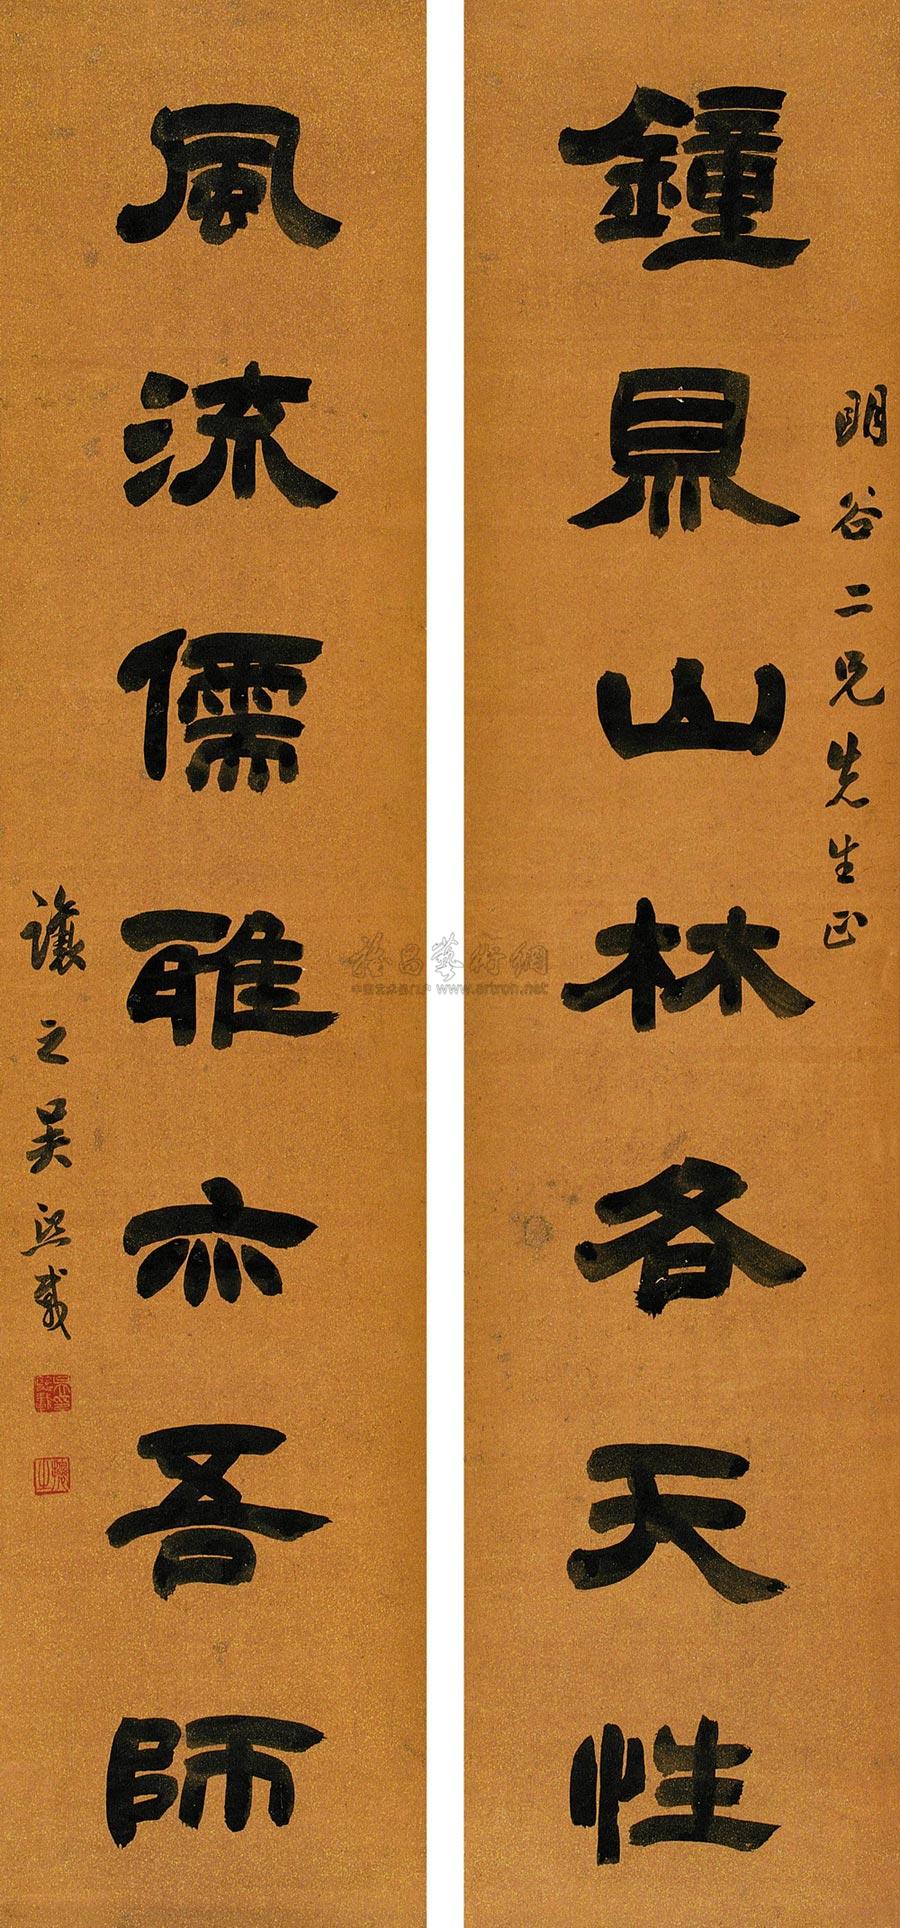 明谷二兄先生正
鐘鼎山林各天性
風流儒雅亦吾師
讓之吳熙載
www.artron.net